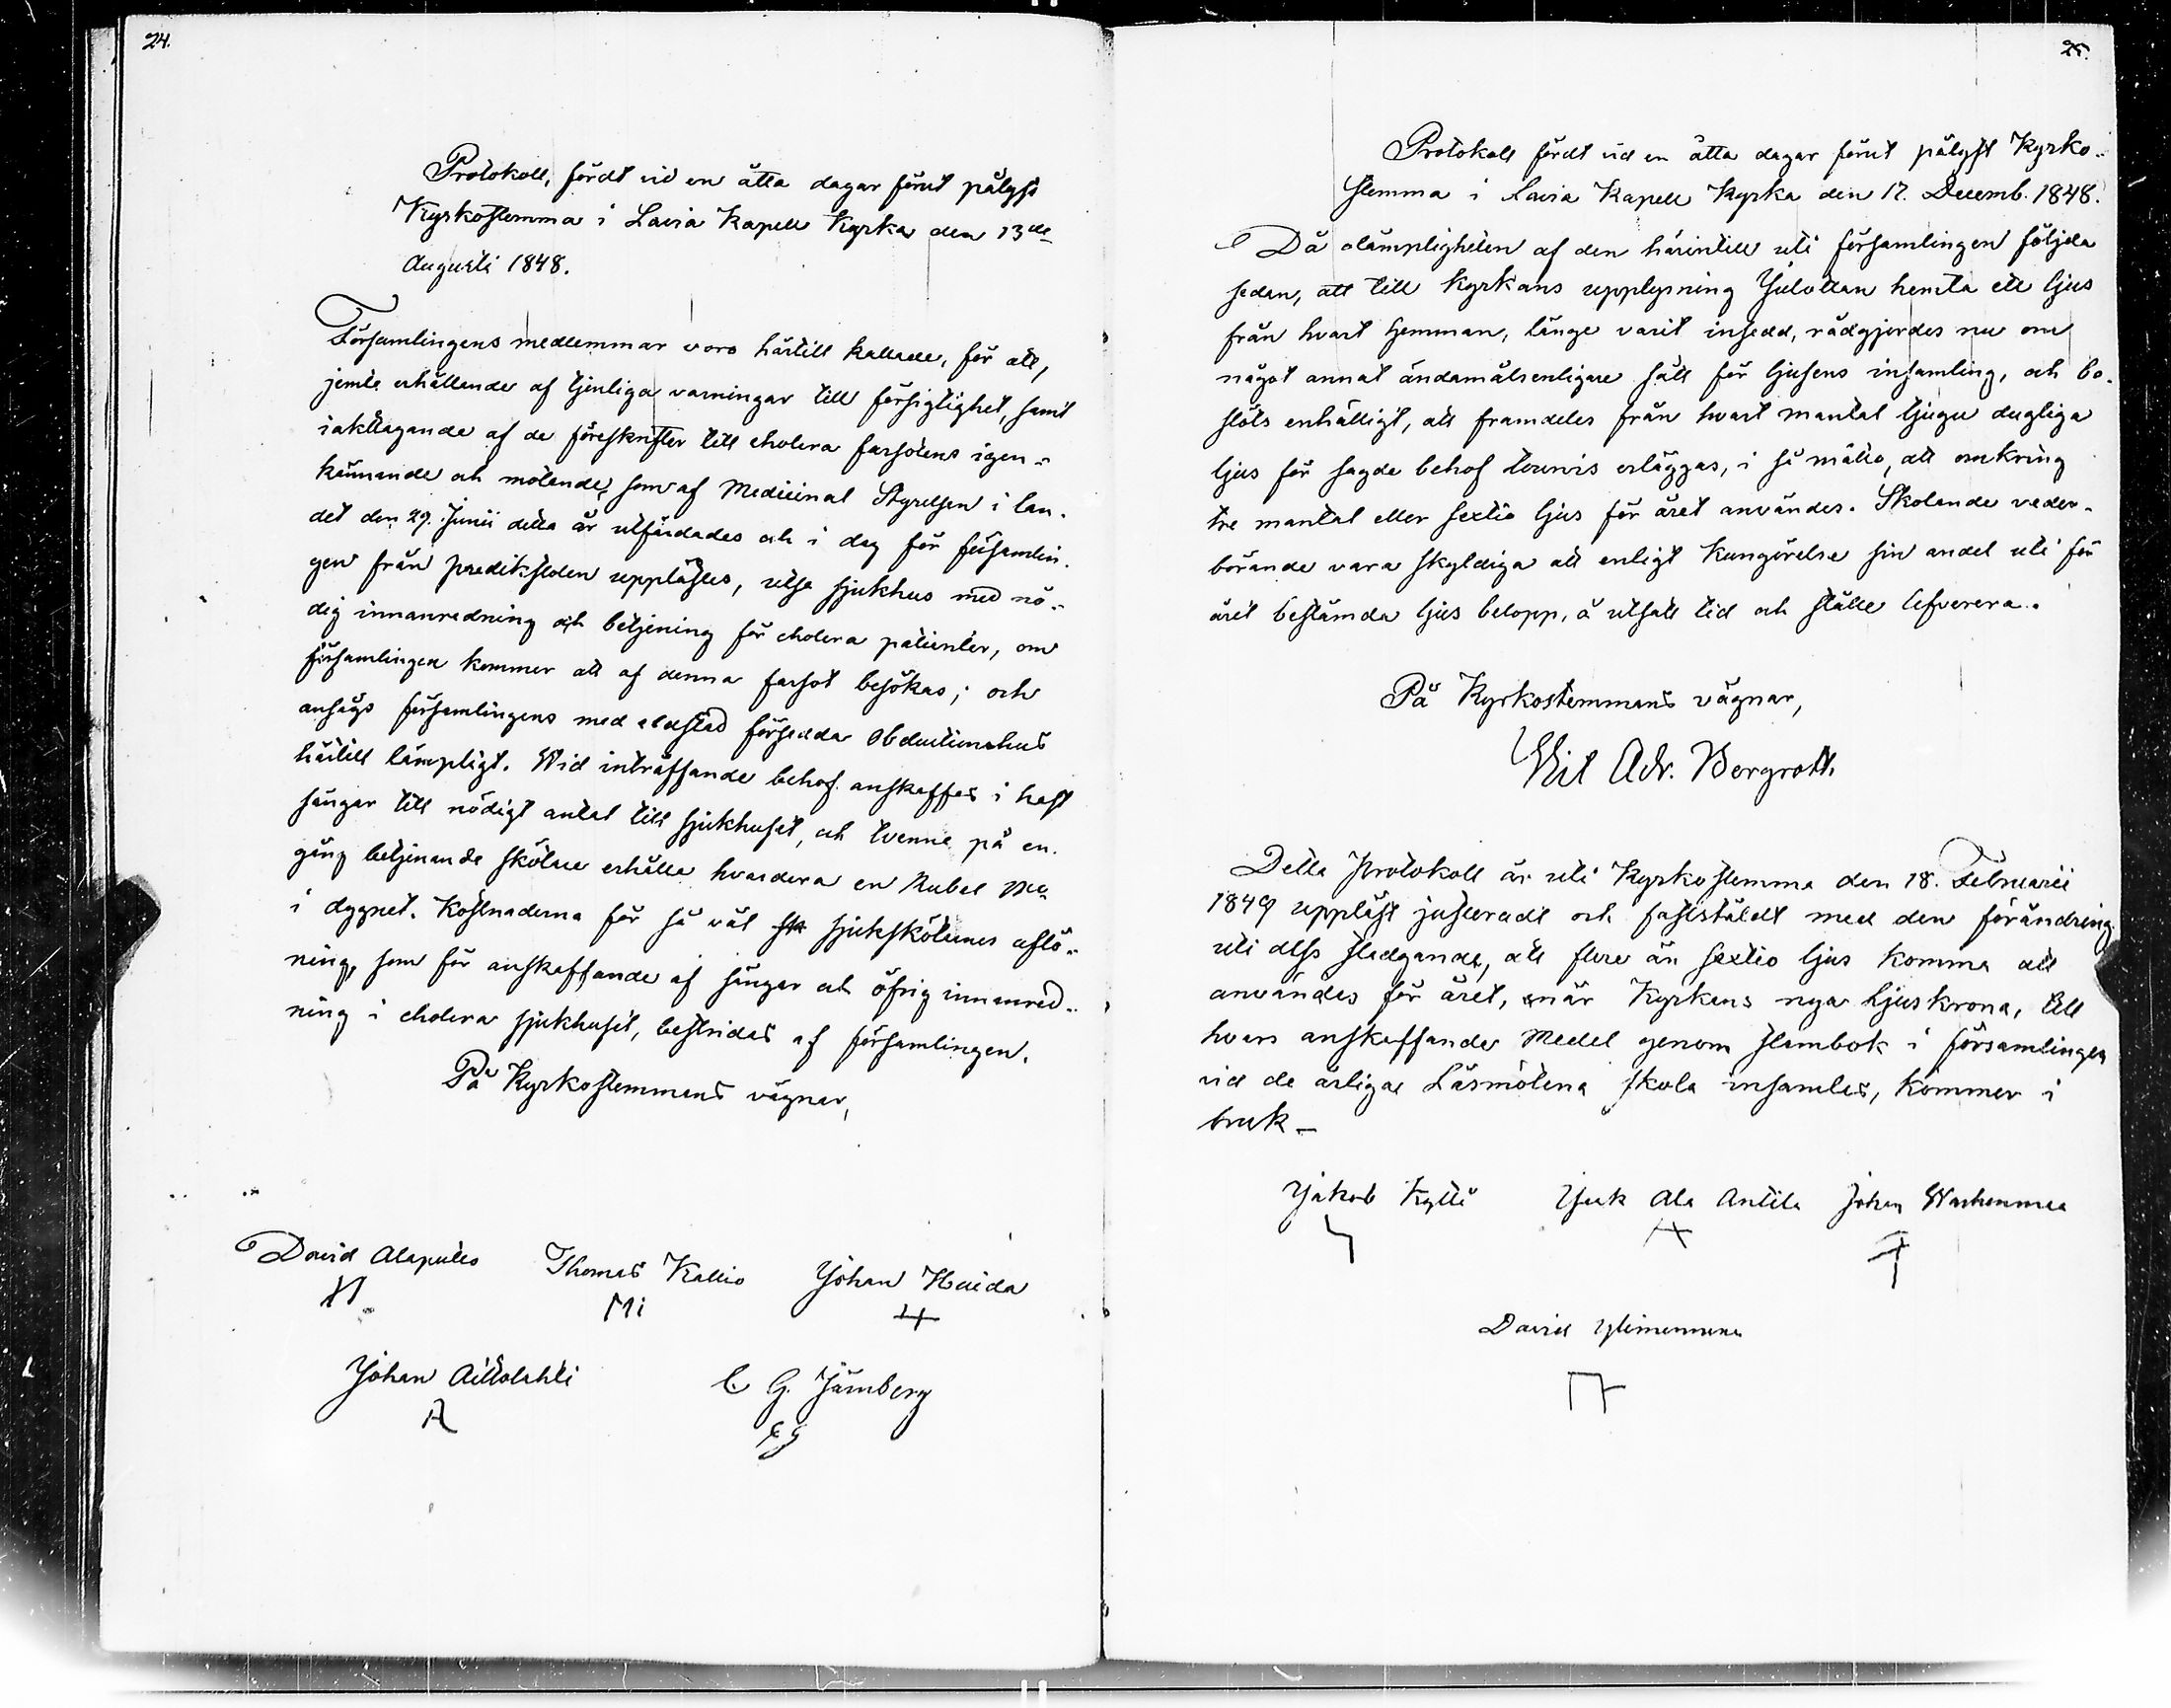 24.
Protokoll, fördt vid en åtta dagar förut pålyst
Kyrkostemma i Lavia Kapell Kyrka den 13de
Augusti 1848.
Församlingens medlemmar voro härtill kallade, för att,
jemte erhållande af tjenliga varningar till försigtighet, samt
iakttagande af de föreskrifter till cholera farsotens igen-
kännande och mötande, som af Medicinal Styrelsen i lan-
det den 29. Junii detta år utfärdades och i dag för församlin-
gen från predikstolen upplästes, utse sjukhus med nö-
dig innanredning och betjening för cholera patienter, om
församlingen kommer att af denna farsot besökas; och
ansågs församlingens med eldstad försedda Obductionshus
härtill lämpligt. Wid inträffande behof anskaffas i hast
sängar till nödigt antal till sjukhuset, och tvenne på en
gång betjenande skötare erhålla hvardera en Rubel
i dygnet. Kostnaderna för så väl sjukskötarnes aflö-
ning, som för anskaffande af sängar och öfrig innanred-
ning i cholera sjukhuset, bestridas af församlingen.
På Kyrkostemmans vägnar,
David Alapules Thomas Kallio Johan Haida
Mi
Johan Aittolahti C. G. Jämberg
CG
25.
Protokoll fördt vid en åtta dagar förut pålyst Kyrko-
stemma i Lavia Kapell Kyrka den 17. Decemb. 1848.
Då olämpligheten af den härintill uti församlingen följda
sedan, att till Kyrkans upplysning Julottan hemta ett ljus
från hvart hemman, länge varit insedd, rådgjordes nu om
något annat ändamålsenligare sätt för ljusens insamling, och be-
slöts enhälligt, att framdeles från hvart mantal tjugu dugliga
ljus för sagde behof turvis erläggas, i så måtto, att omkring
tre mantal eller sextio ljus för året användes. Skolande veder-
börande vara skyldiga att enligt Kungörelse sin andel uti för
året bestämda ljus belopp, å utsatt tid och ställe lefverera.
På Kyrkostemmans vägnar,
Vit Adr. Bergroth
Detta Protokoll är uti Kyrkostemma den 18. Februarii
1849 uppläst justeradt och fastställdt med den förändring
uti dess stadgande, att flere än sextio ljus komma att
användas för året, när Kyrkans nya ljuskrona, till
hvars anskaffande Medel genom stambok i församlingen
vid de årliga Läsmötena skola insamlas, kommer i
bruk -
Jakob Kyttö Isak Ala Antila Johan
David